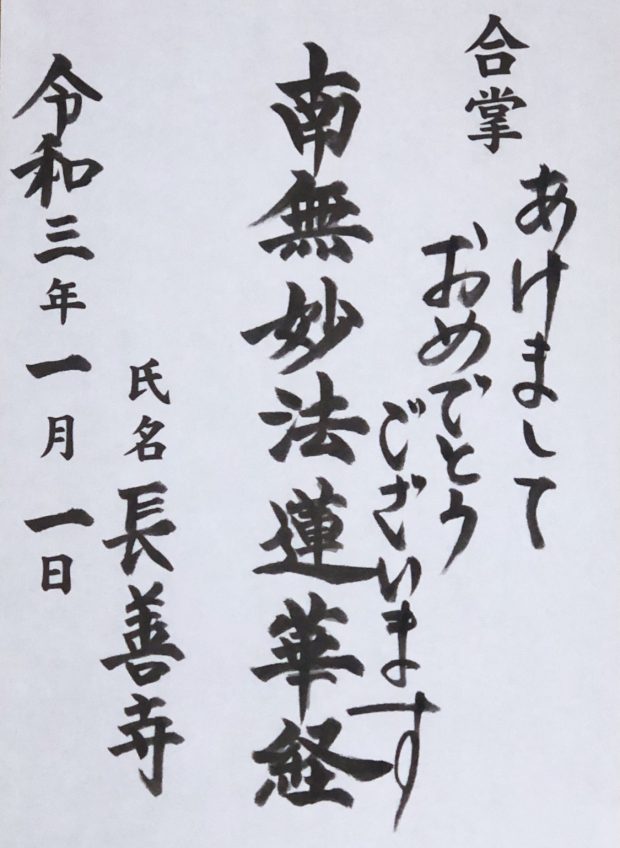 合掌
あけまして
おめでとう
ございます
南無妙法蓮華経
氏名 長善寺
令和三年一月一日